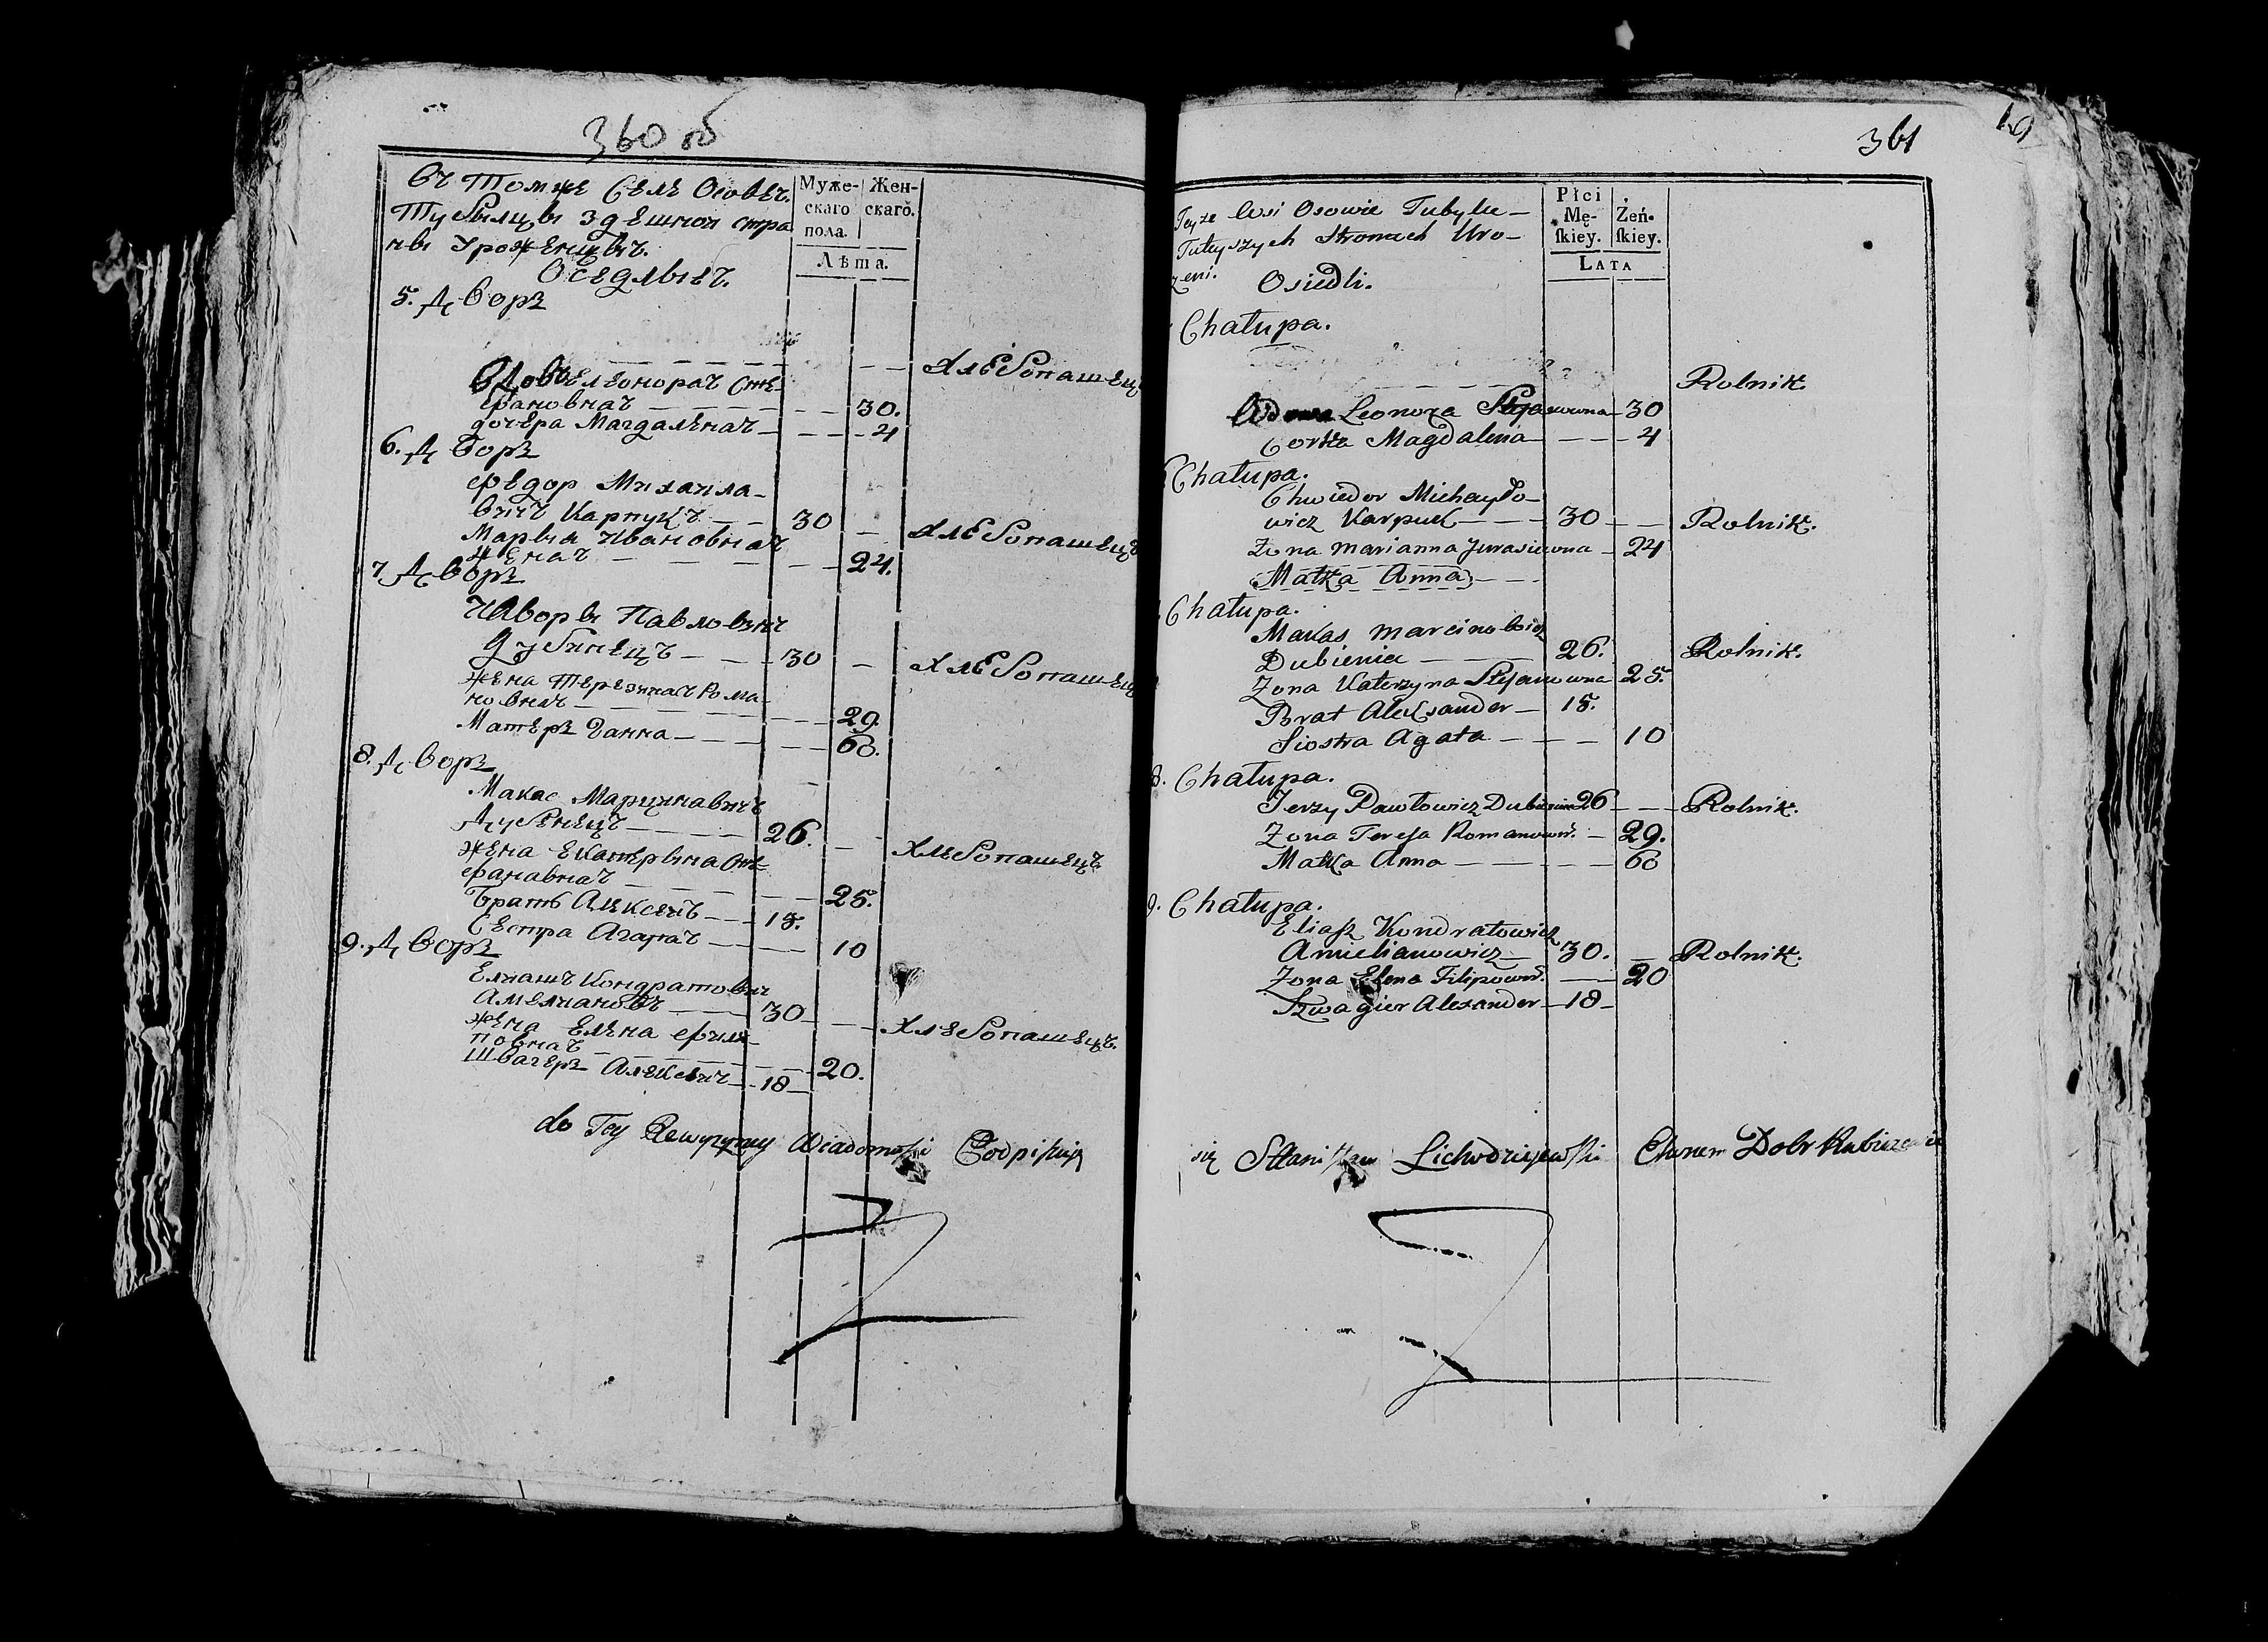 360 об
Въ Томже Селѣ Осовѣч.
Тубылцы здешной стра
ны Урожѣнцыч.
Осѣдлыѣч.
Муже-
скаго
пола.
Жен-
скаго.
Лѣта.
5. Дворъ
Хлѣбопашец
Вдовъ Елѣонорач Сте-
фановнач — — 30.
дочѣра Магдалѣнач — — 4
6. Дворъ
Ѳѣдор Михаила-
вичъ Карпукъ — — 30 — Хлѣбопашец
Марыя Ивановнач
Жѣнач — — — 24.
7. Дворъ
Яворы Павловичъ
Дубинѣцъ — — 30 — Хлѣбопашец
жѣна Терезыач Рома
новнач — — — 29.
Матѣръ Ганна — — — 60.
8. Дворъ
Макас Марцинавичъ
Дубѣнѣцъ — — 26. — Хлѣбопашецъ
жѣна Екатѣрына Сте-
фанавнач — — 25.
Братъ Алѣксѣйъ — — 15.
Сѣстра Агатач — — 10
9. Дворъ
Елиашъ Кондратович
Амелиановъ — 30 — — Хлѣбопашецъ.
жѣна Елѣна Фили-
повнач — — — 20.
Швагеръ Алѣксѣич — 18 —
do Tey Rewizyiney Wiadomości Podpisuję
361
Teyże Wsi Osowie Tubylu—
Tuteyszych Stronach Uro—
zeni.
Osiedli.
Płci
Mę-
ſkiey.
Żeń-
ſkiey.
LATA
Chałupa.
Rolnik
Wdowa Leonora Stefanowna — 30
Corka Magdalena — — — 4
6 Chałupa.
Chwiedor Michayło-
wicz Karpuk — — — 30 — — Rolnik.
Żona Marianna Jurasiewna — 24
Matka Anna — — —
Chałupa.
Makas Marcinowicz
Dubieniec — — — 26. Rolnik.
Żona Katerzyna Stefanowna 25.
Brat Alexander — 15.
Siostra Agata — — — 10
8. Chałupa.
Jerzy Pawłowicz Dubieniec 26 — — Rolnik.
Żona Teresa Romanown. — 29.
Matka Anna — — — — 60
9. Chałupa.
Eliasz Kondratowicz
Amielianowicz — 30. — Rolnik.
Żona Elena Filipown. — — 20
Szwagier Alexander — 18 —
się Stanisław Lichodziejewski Ekonom Dobr